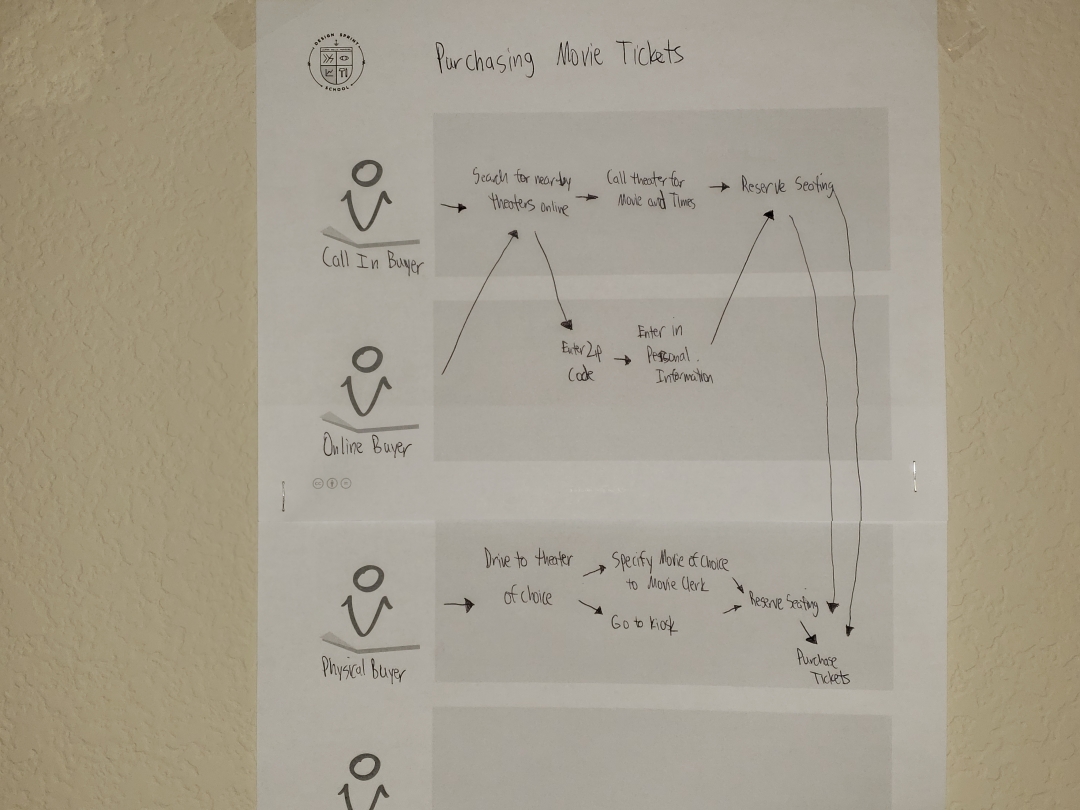 DESIGN SPRINT
SCHOOL
Purchasing Movie Tickets
Search for nearby
theaters online
Call theater for
Movie and Times
Reserve Seating
Call In Buyer
Enter Zip
Code
Enter in
Personal
Information
Online Buyer
cc
Drive to theater
of choice
Specify Movie of Choice
to Movie Clerk
Go to kiosk
Reserve Seating
Purchase
Tickets
Physical Buyer